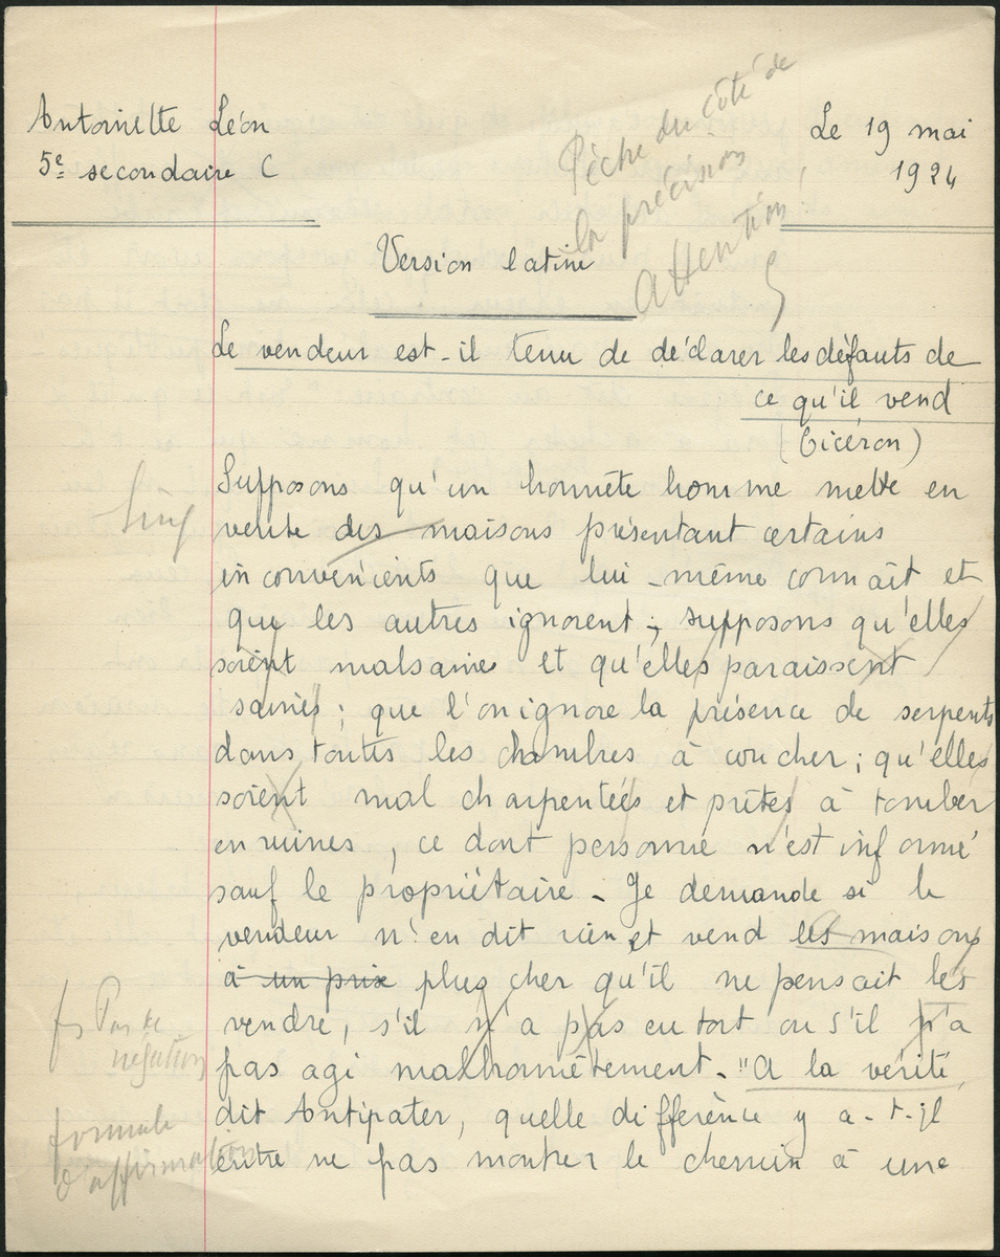 Antoinette Léon
5e secondaire C
Le 19 mai
1924
Pèche du côté de
la précision
Attention!
Version latine
Le vendeur est-il tenu de déclarer les défauts de
ce qu'il vend
(Cicéron)
Sing
Supposons qu'un honnête homme mette en
vente des maisons présentant certains
inconvénients que lui-même connaît et
que les autres ignorent; supposons qu'elles
soient malsaines et qu'elles paraissent
saines; que l'on ignore la présence de serpents
dans toutes les chambres à coucher; qu'elles
soient mal charpentées et prêtes à tomber
en ruines, ce dont personne n'est informé
sauf le propriétaire - Je demande si le
vendeur n'en dit rien et vend les maisons
à un prix plus cher qu'il ne pensait les
vendre, s'il n'a pas eu tort ou s'il n'a
pas agi malhonnêtement. "A la vérité,
Pas de
négation
dit Antipater, quelle différence y a-t-il
formule
d'affirmation
entre ne pas montrer le chemin à une